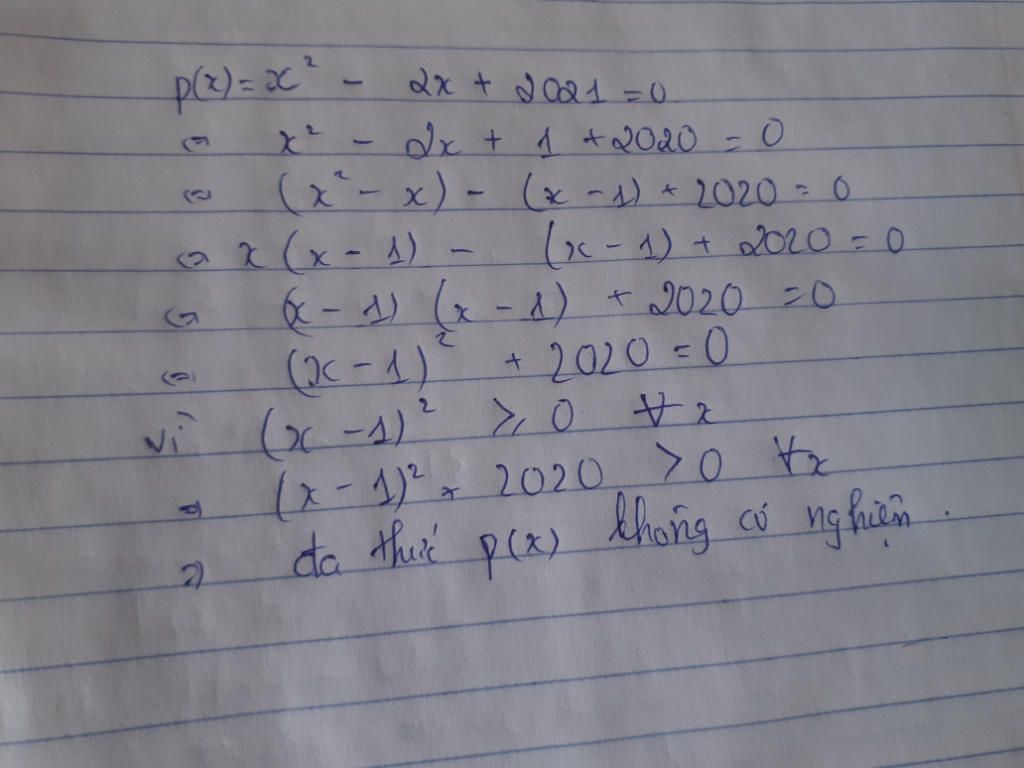 p(x) = x² - 2x + 2021 = 0
⇔ x² - 2x + 1 + 2020 = 0
⇔ (x² - x) - (x - 1) + 2020 = 0
⇔ x (x - 1) - (x - 1) + 2020 = 0
⇔ (x - 1) (x - 1) + 2020 = 0
⇔ (x - 1)² + 2020 = 0
vì (x - 1)² ⩾ 0 ∀ x
⇒ (x - 1)² + 2020 > 0 ∀x
⇒ đa thức p(x) không có nghiệm.